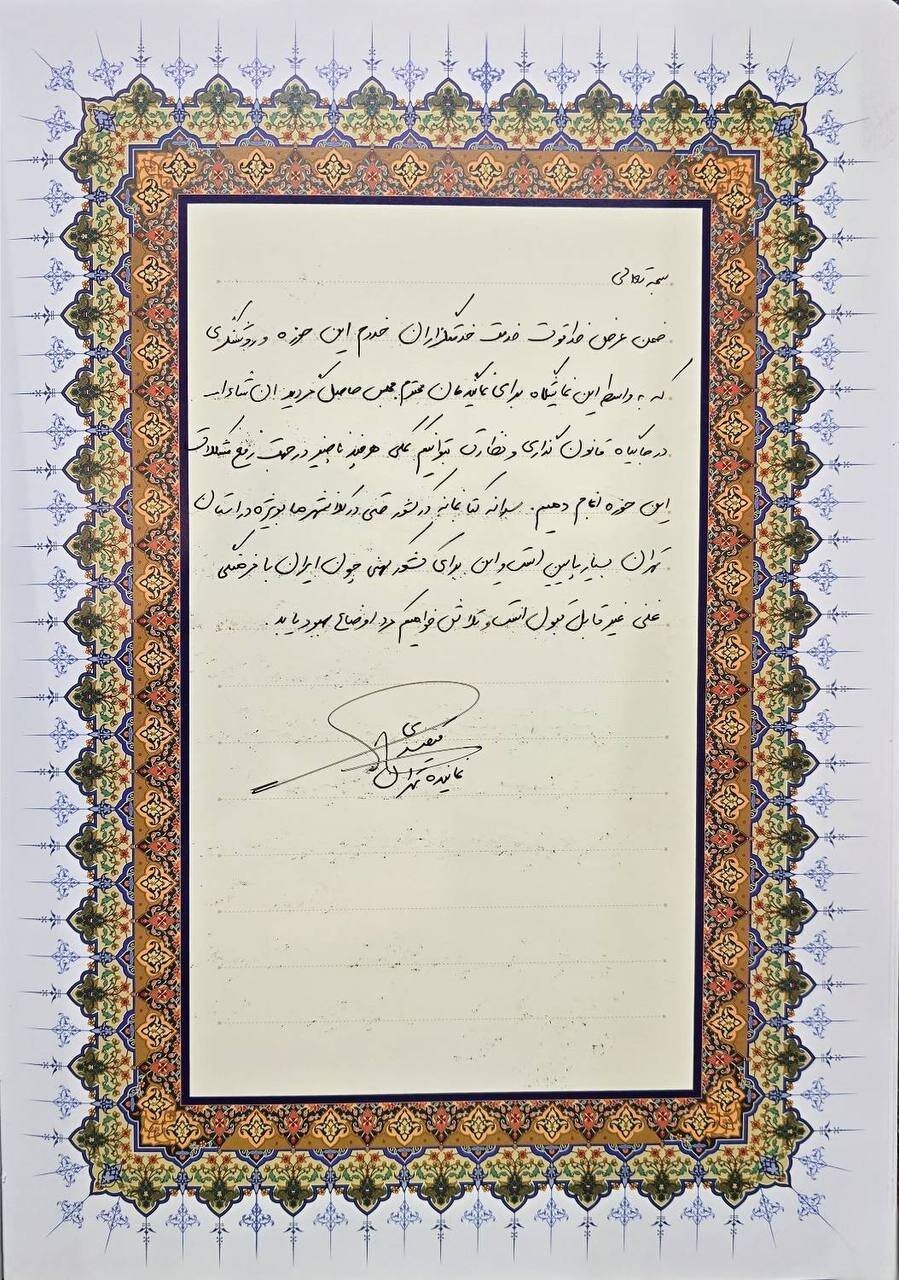 بسمه تعالی
ضمن عرض خداقوت خدمت خدمتگزاران خدوم این حوزه و روشنگری
که به واسطه این نمایشگاه برای نمایندگان محترم مجلس حاصل گردید ان شاءالله
در جایگاه قانون گذاری و نظارت بتوانیم کمکی هرچند ناچیز در جهت رفع مشکلات
این حوزه انجام دهیم. سرانه کتابخانه در کشور حتی در کلانشهرها بویژه در استان
تهران بسیار پایین است و این برای کشور کهنی چون ایران با فرهنگی
غنی غیر قابل قبول است و تلاش خواهیم کرد اوضاع بهبود یابد.
نماینده تهران